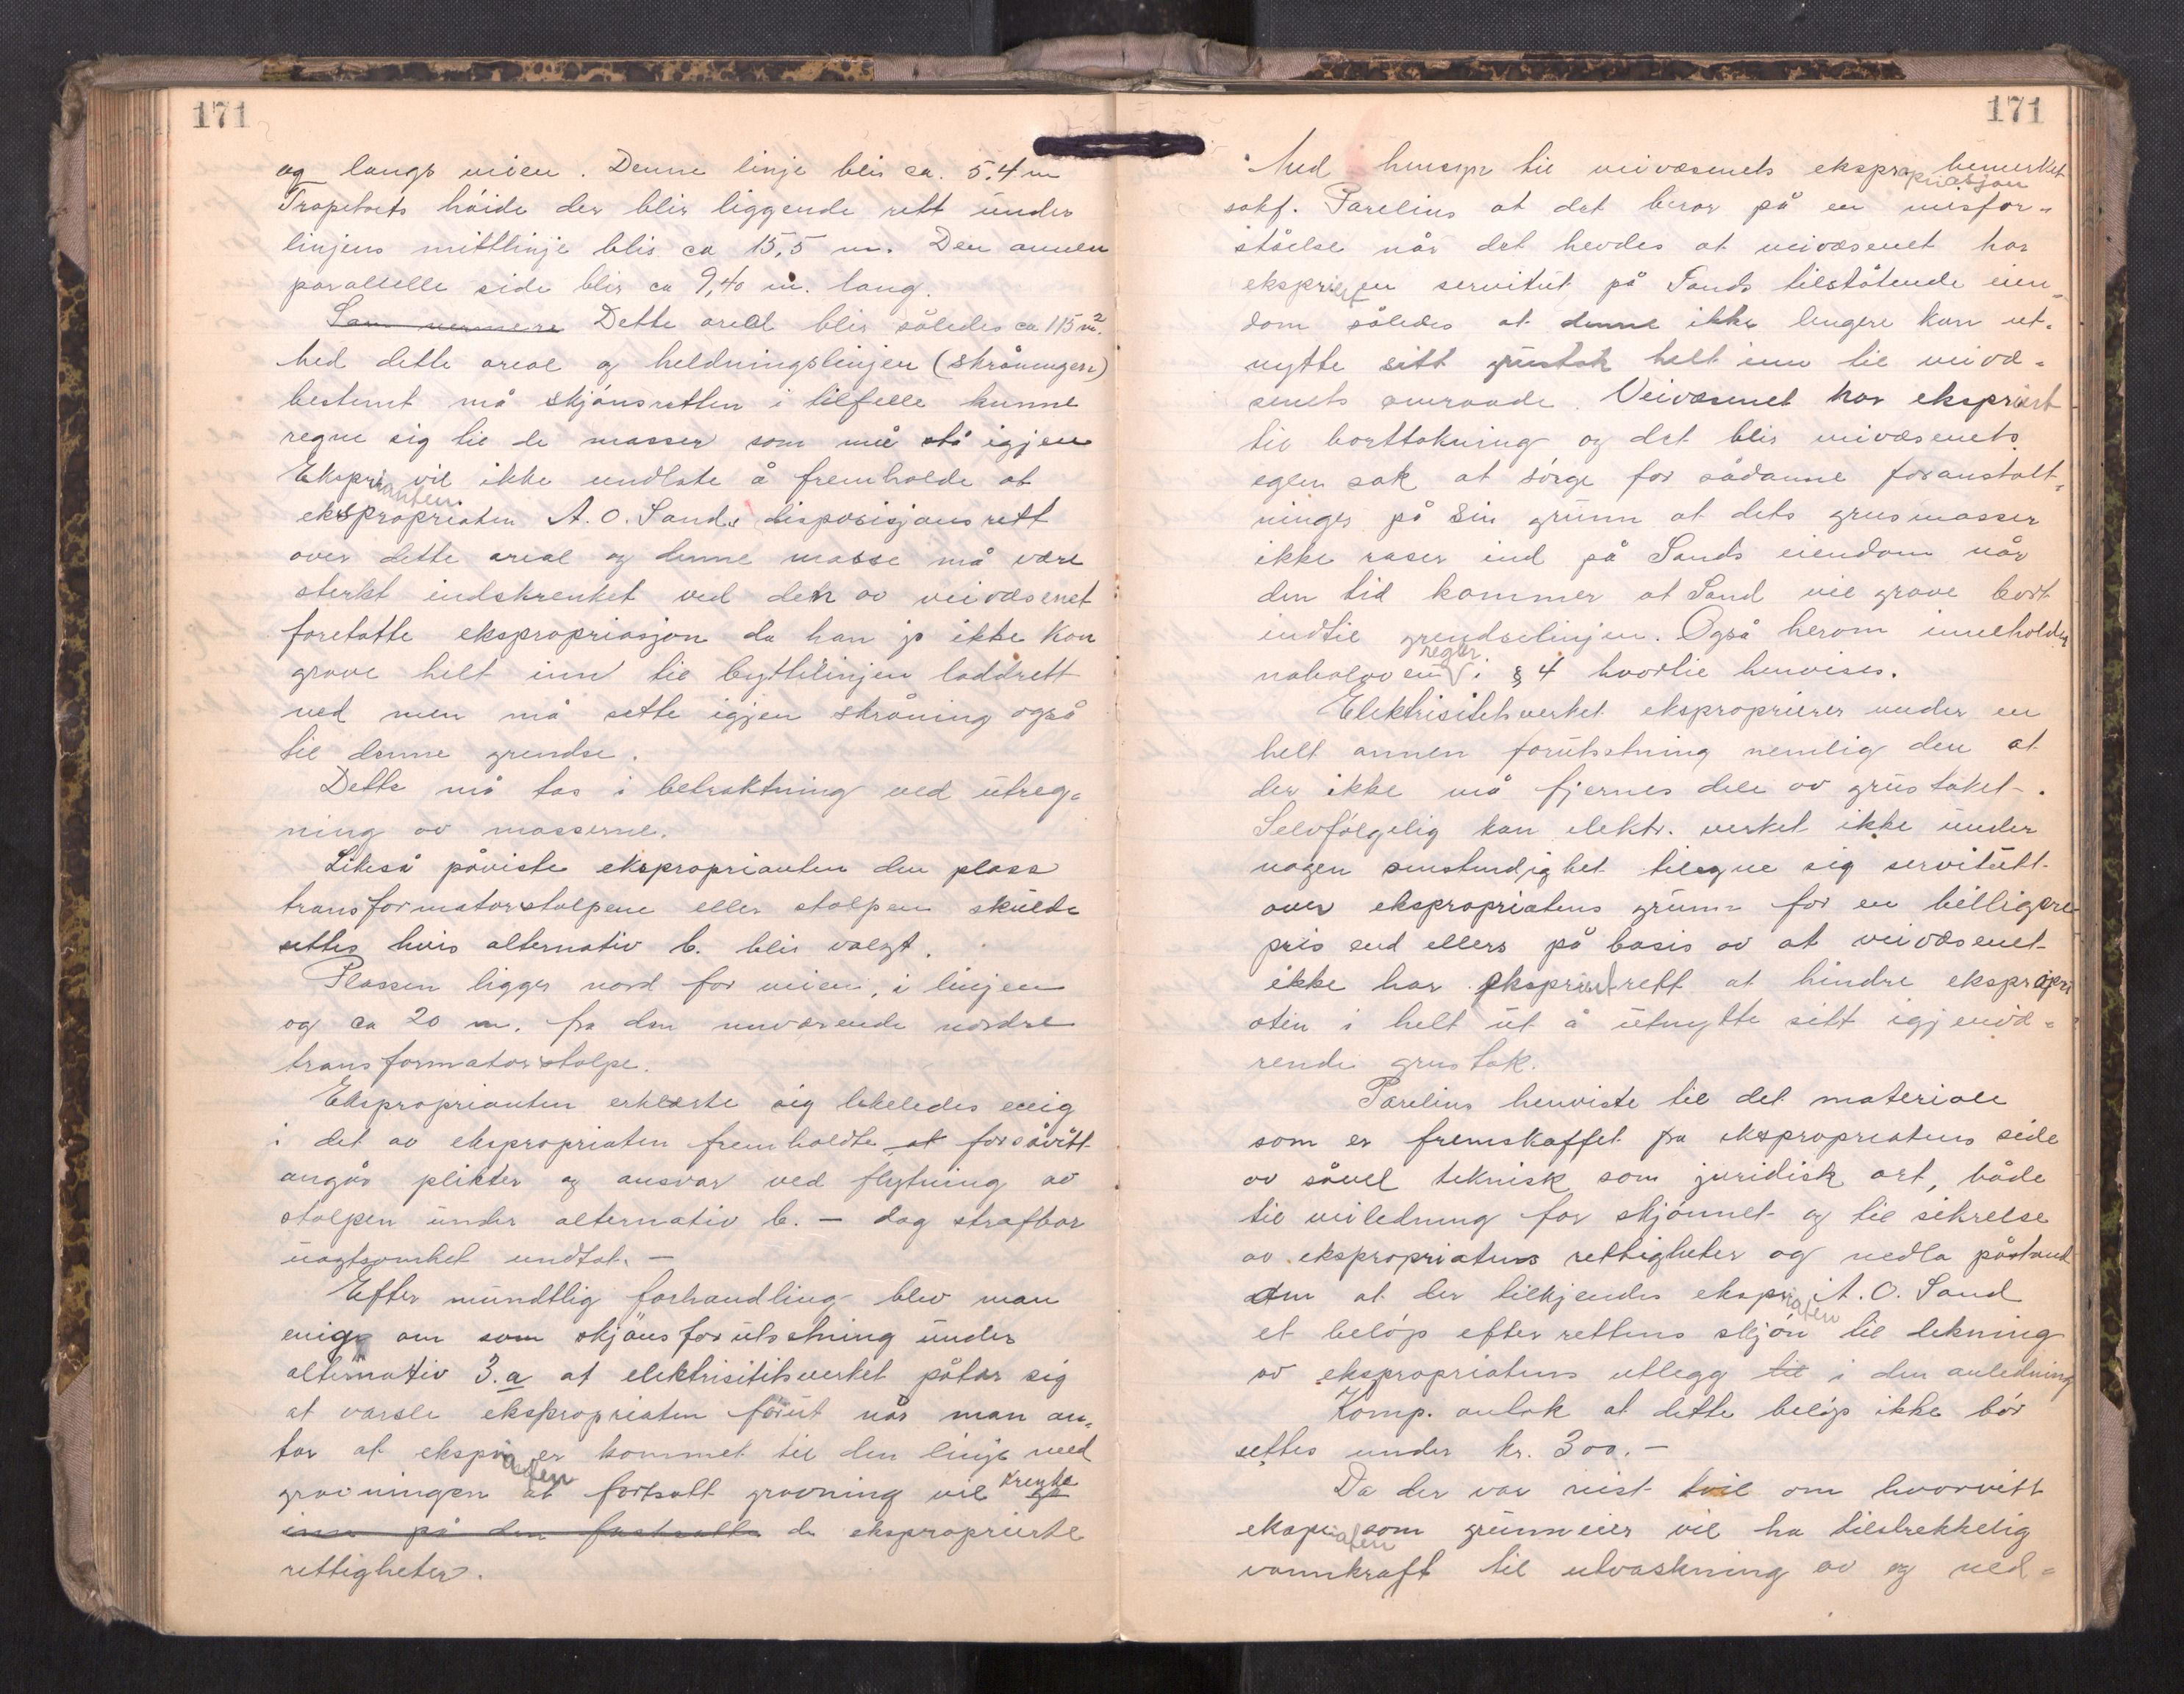 171
og langs veien. Denne linje blir ca. 5.4 m
Trapetsets höide der blir liggende rett under
linjens mittlinje blir ca 15,5 m. Den annen
parallelle side blir ca 9,40 m. lang.
Dette areal blir således ca 115 m².
Med dette areal og heldningslinjen (skråningen)
bestemt må skjönsretten i tilfelle kunne
regne sig til de masser som må stå igjen
Ekspropianten vil ikke undlate å fremholde at
ekspropriaten A. O. Sands disposisjonsrett
over dette areal og denne masse må være
sterkt indskrenket ved den av veivæsenet
foretatte ekspropriasjon da han jo ikke kan
grave helt inn til byttelinjen loddrett
ned men må sette igjen skråning også
til denne grendse.
Dette må tas i betraktning ved utreg-
ning av masserne.
Likeså påviste ekspropianten den plass
transformatorstolpene eller stolpen skulde
settes hvis alternativ b. blir valgt.
Plassen ligger nord for veien, i linjen
og ca 20 m. fra den nuværende nordre
transformatorstolpe.
Eksproprianten erklærte sig likeledes enig
i det av ekspropriaten fremholdte at forsåvitt
angår plikter og ansvar ved flytning av
stolpen under alternativ b. — dog strafbar
uagtsomhet undtat. —
Efter mundtlig forhandling blev man
enige om som skjönsforutsetning under
alternativ 3.a at elektrisitetsverket påtar sig
at varsle ekspropriaten forut når man an-
tar at ekspriaten er kommet til den linje ved
gravningen at fortsatt gravning vil krenke
inn på den fastsatte de eksproprierte
rettigheter.
171
Med hensyn til veivæsenets ekspropriasjon bemerket
sakf. Parelius at det beror på en misfor-
ståelse når det hevdes at veivæsenet har
ekspriert en servitut på Sands tilstötende eien-
dom således at denne ikke lengere kan ut-
nytte sitt grustak helt inn til veivæ-
senets omraade. Veivæsenet har ekspriert
til borttakning og det blir veivæsenets
egen sak at sörge for sådanne foranstalt-
ninger på sin grunn at dets grusmasser
ikke raser ind på Sands eiendom når
den tid kommer at Sand vil grave bort
indtil grendselinjen. Også herom inneholder
naboloven regler i § 4 hvortil henvises.
Elektrisitetsverket eksproprierer under en
helt annen forutsetning nemlig den at
der ikke må fjernes dele av grustaket.
Selvfölgelig kan elektr. verket ikke under
nogen omstendighet tilegne sig servitutt
over ekspropriatens grunn for en billigere
pris end ellers på basis av at veivæsenet
ikke har ekspriert rett at hindre ekspropri
aten i helt ut å utnytte sitt igjenvæ-
rende grustak.
Parelius henviste til det materiale
som er fremskaffet fra ekspropriatens side
av såvel teknisk som juridisk art, både
til veiledning for skjönnet og til sikrelse
av ekspropriatens rettigheter og nedla påstand
om at der tilkjendes ekspriaten A. O. Sand
et belöp efter rettens skjön til dekning
av ekspropriatens utlegg til i den anledning
Komp. antok at dette belöp ikke bör
settes under kr. 300. —
Da der var reist tvil om hvorvitt
ekspriaten som grunneier vil ha tilstrekkelig
vannkraft til utvaskning av og ned-